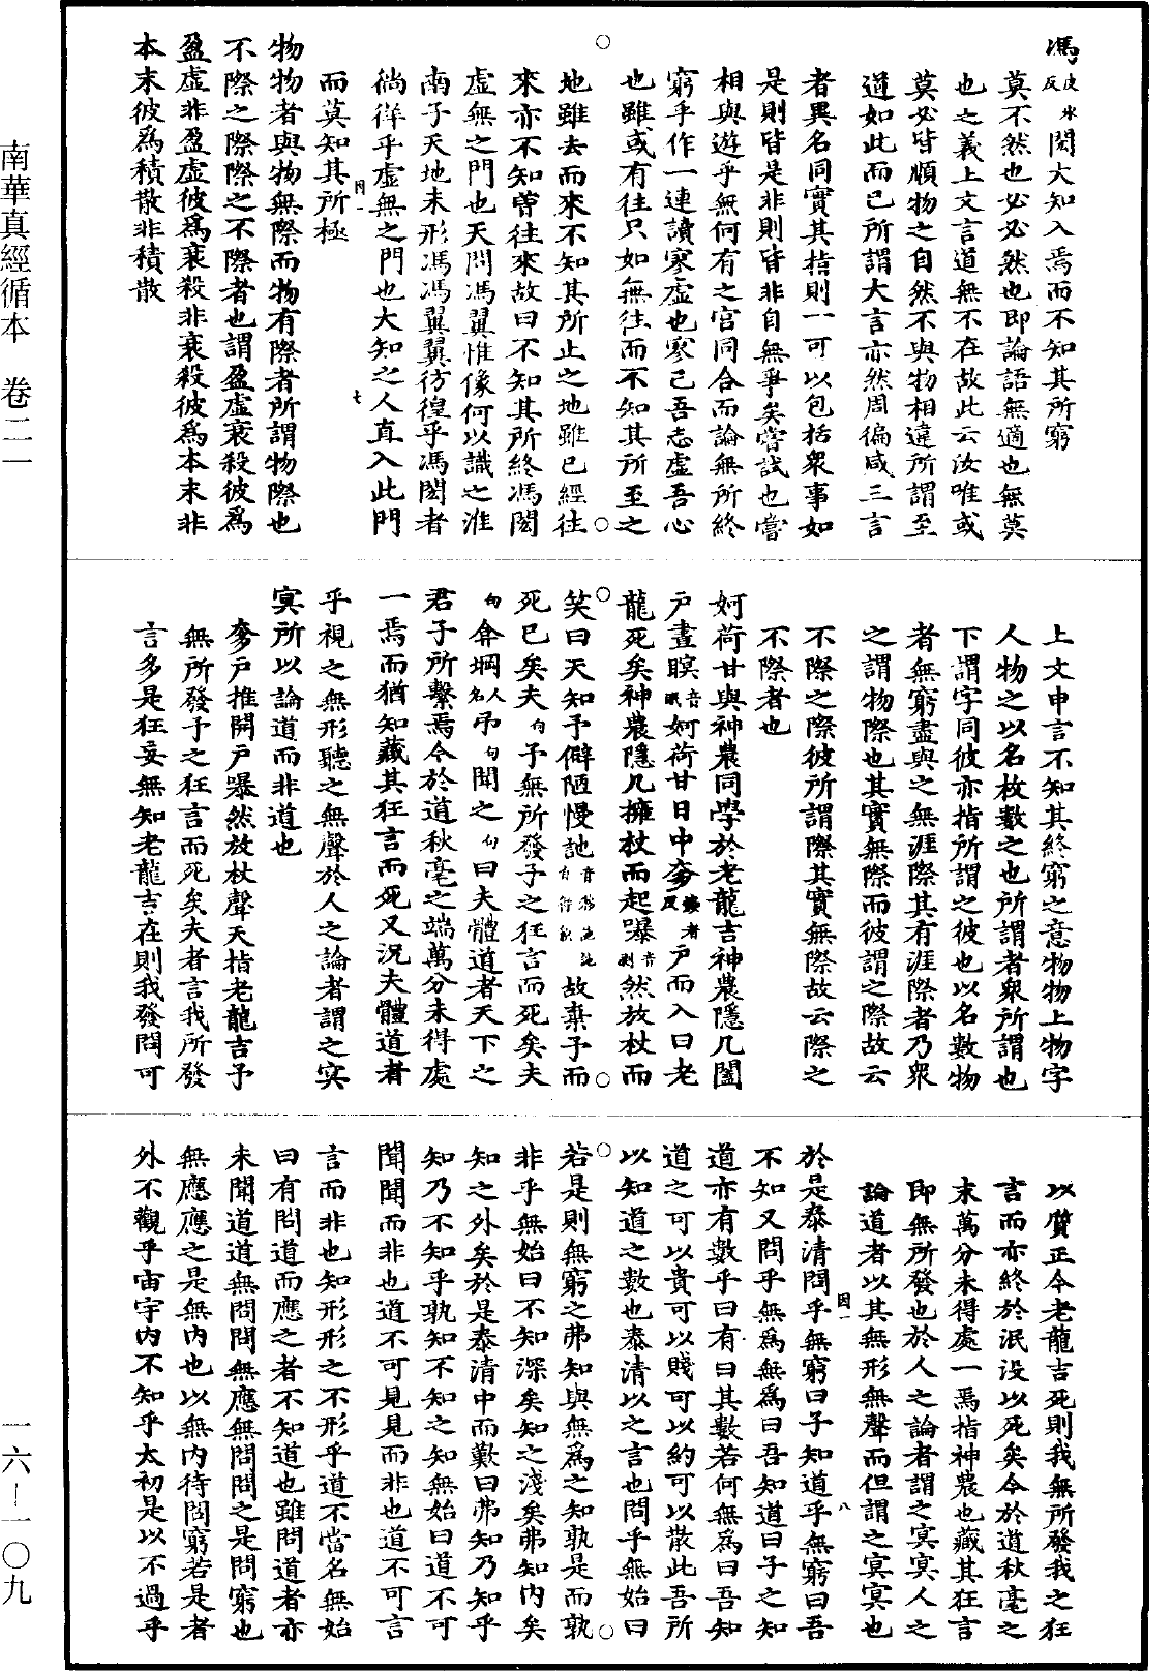 馮皮冰反閎大知入焉而不知其所窮
莫不然也必必然也即論語無適也無莫
也之義上文言道無不在故此云汝唯或
莫必皆順物之自然不與物相違所謂至
道如此而已所謂大言亦然周徧咸三言
者異名同實其指則一可以包括衆事如
是則皆是非則皆非自無爭矣嘗試也嘗
相與遊乎無何有之宮同合而論無所終
窮乎作一連讀寥虛也寥已吾志虛吾心
也雖或有往只如無往而不知其所至之
地雖去而來不知其所止之地雖已經往
來亦不知曾往來故曰不知其所終馮閎
虛無之門也天問馮翼惟像何以識之淮
南子天地未形馮馮翼翼彷徨乎馮閎者
徜徉乎虛無之門也大知之人直入此門
而莫知其所極
物物者與物無際而物有際者所謂物際也
不際之際際之不際者也謂盈虛衰殺彼爲
盈虛非盈虛彼爲衰殺非衰殺彼爲本末非
本末彼爲積散非積散
因一
七
上文申言不知其終窮之意物物上物字
人物之以名枚數之也所謂者衆所謂也
下謂字同彼亦指所謂之彼也以名數物
者無窮盡與之無涯際其有涯際者乃衆
之謂物際也其實無際而彼謂之際故云
不際之際彼所謂際其實無際故云際之
不際者也
妸荷甘與神農同學於老龍吉神農隱几闔
戶晝瞑音眠妸荷甘日中奓處者反戶而入曰老
龍死矣神農隱几擁杖而起曝音剝然放杖而
笑曰天知予僻陋慢訑故棄予而
死已矣夫句予無所發予之狂言而死矣夫
句弇堈人名弔句聞之句曰夫體道者天下之
君子所繫焉今於道秋毫之端萬分未得處
一焉而猶知藏其狂言而死又況夫體道者
乎視之無形聽之無聲於人之論者謂之冥
冥所以論道而非道也
奓戶推開戶曝然放杖聲天指老龍吉予
無所發予之狂言而死矣夫者言我所發
言多是狂妄無知老龍吉在則我發問可
以質正今老龍吉死則我無所發我之狂
言而亦終於泯没以死矣今於道秋毫之
末萬分未得處一焉指神農也藏其狂言
即無所發也於人之論者謂之冥冥人之
論道者以其無形無聲而但謂之冥冥也
於是泰清問乎無窮曰子知道乎無窮曰吾
不知又問乎無爲無爲曰吾知道曰子之知
道亦有數乎曰有曰其數若何無爲曰吾知
道之可以貴可以賤可以約可以散此吾所
以知道之數也泰清以之言也問乎無始曰
若是則無窮之弗知與無爲之知孰是而孰
非乎無始曰不知深矣知之淺矣弗知內矣
知之外矣於是泰清中而歎曰弗知乃知乎
知乃不知乎孰知不知之知無始曰道不可
聞聞而非也道不可見見而非也道不可言
言而非也知形形之不形乎道不當名無始
曰有問道而應之者不知道也雖問道者亦
未聞道道無問問無應無問問之是問窮也
無應應之是無內也以無內待問窮若是者
外不觀乎宙宇內不知乎太初是以不過乎
因一
八
南華真經循本 卷二一
一六—一〇九